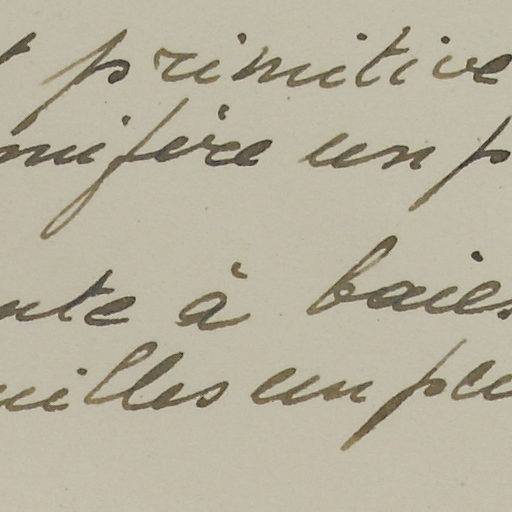 primitive
nifère un p
nte à baies
uilles un peu